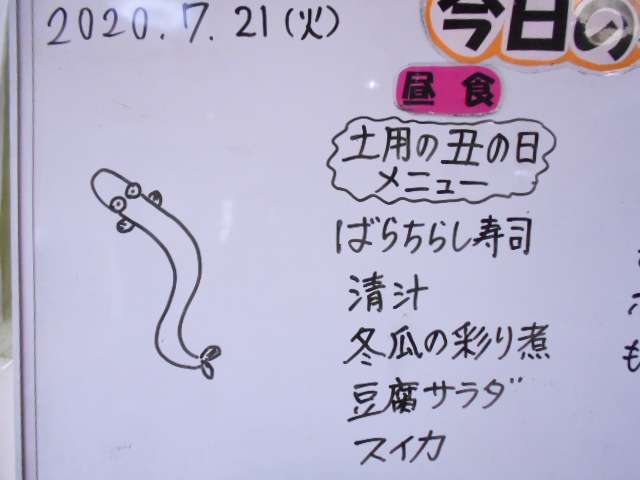 2020.7.21(火)
今日の
昼食
土用の丑の日
メニュー
ばらちらし寿司
清汁
冬瓜の彩り煮
豆腐サラダ
スイカ